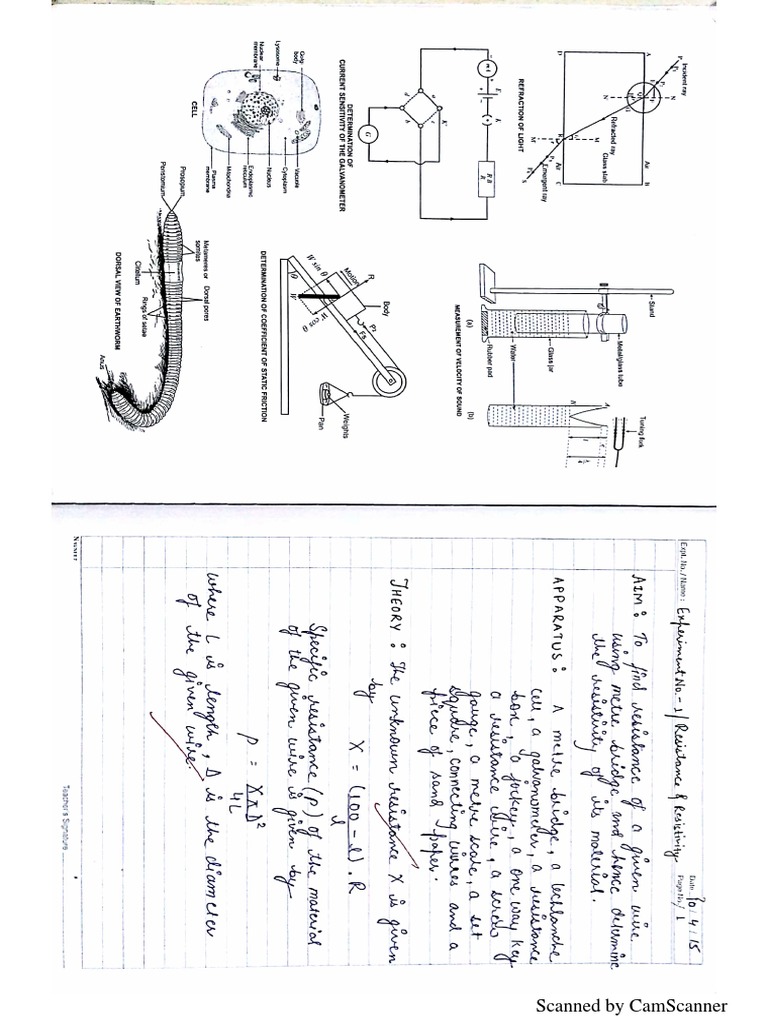 Incident ray
Refracted ray
Glass slab
Air
Air
Emergent ray
REFRACTION OF LIGHT
Stand
Metal/glass tube
Glass jar
Water
Rubber pad
Tuning fork
(a)
(b)
MEASUREMENT OF VELOCITY OF SOUND
R B
R
G
DETERMINATION OF
CURRENT SENSITIVITY OF THE GALVANOMETER
Body
Motion
R
W sin θ
W cos θ
W
θ
Weights
Pan
DETERMINATION OF COEFFICIENT OF STATIC FRICTION
Golgi
body
Lysosome
Nuclear
membrane
Vacuole
Cytoplasm
Nucleus
Endoplasmic
reticulum
Mitochondria
Plasma
membrane
CELL
Prosopium
Peristomium
Metameres or
somites
Dorsal pores
Clitellum
Rings of setae
Anus
DORSAL VIEW OF EARTHWORM
Expt. No./Name : Experiment No.-1/Resistance & Resistivity
Date
/4/15
Page No. 1
AIM : To find resistance of a given wire
using metre bridge and hence determine
the resistivity of its material.
APPARATUS : A metre bridge, a lechlanche
cell, a galvanometer, a resistance
box, a jockey, a one way key
a resistance wire, a screw
gauge, a metre scale, a set
square, connecting wires and a
piece of sand paper.
THEORY : The unknown resistance X is given
by
X = (100 - l) . R
l
Specific resistance (ρ) of the material
of the given wire is given by
ρ = XπD²
4L
where L is length, D is the diameter
of the given wire.
Teacher's Signature
Scanned by CamScanner